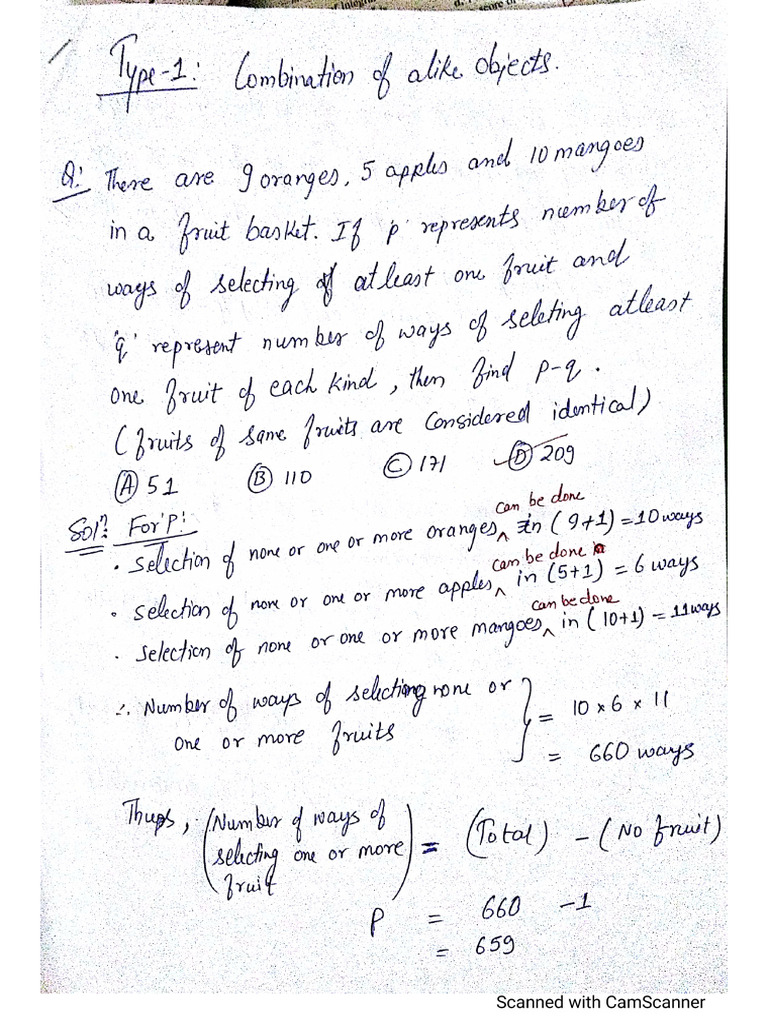 Type-1: Combination of alike objects.
Q: There are 9 oranges, 5 apples and 10 mangoes
in a fruit basket. If 'p' represents number of
ways of selecting atleast one fruit and
'q' represent number of ways of seleting atleast
one fruit of each kind, then find p-q.
(fruits of same fruits are considered identical)
(A) 51 (B) 110 (C) 171 (D) 209
Sol?: For 'P':
can be done
• Selection of none or one or more oranges ^ in (9+1) = 10 ways
can be done
• Selection of none or one or more apples ^ in (5+1) = 6 ways
can be done
• Selection of none or one or more mangoes ^ in (10+1) = 11 ways
∴ Number of ways of selecting none or
one or more fruits } = 10 × 6 × 11
= 660 ways
Thus, (Number of ways of
selecting one or more
fruit) = (Total) - (No fruit)
P = 660 - 1
= 659
Scanned with CamScanner